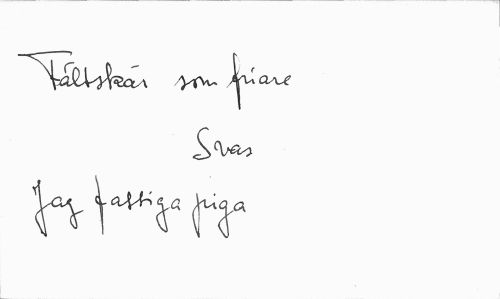 Fältskär som friare
Svar
Jag fattiga piga